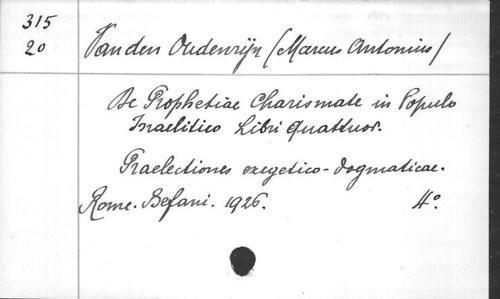 315
20
Van den Oudenrijn (Marcus Antonius)
De Prophetiae Charismate in Populo
Israelitico Libri Quattuor.
Praelectiones exegetico-dogmaticae.
Rome. Befani. 1926. 4°.